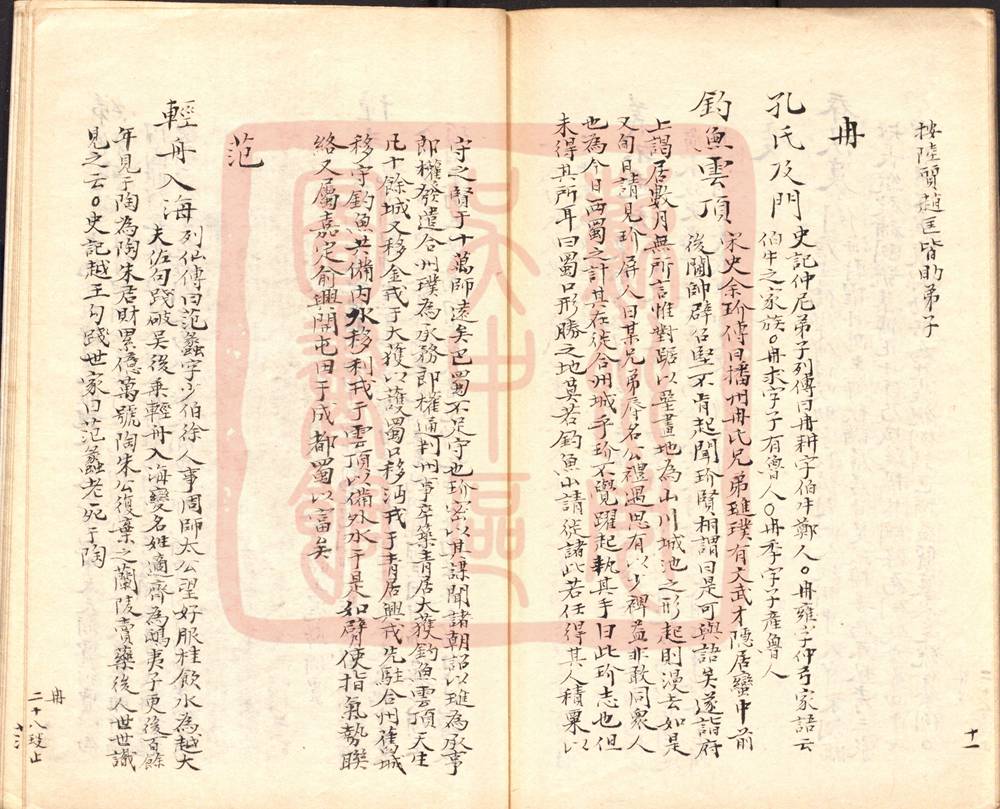 按陸質趙匡皆助弟子
冉
孔氏及門 史記仲尼弟子列傳曰冉耕字伯牛鄭人○冉雍字仲弓家語云
伯牛之宗族○冉求字子有魯人○冉季字子產魯人
釣魚雲頂 宋史余玠傳曰播州冉氏兄弟璡璞有文武才隱居蠻中前
後閫帥辟召堅不肯起聞玠賢相謂曰是可與語矣遂詣府
上謁居數月無所言惟對踞以堊畫地為山川城池之形起則漫去如是
又旬日請見玠屏人曰某兄弟辱名公禮遇思有以少裨益非敢同衆人
也為今日西蜀之計其在徙合州城乎玠不覺躍起執其手曰此玠志也但
未得其所耳曰蜀口形勝之地莫若釣魚山請徙諸此若任得其人積粟以
守之賢于十萬師遠矣巴蜀不足守也玠密以其謀聞諸朝詔以璡為承事
郎權發遣合州璞為承務郎權通判州事卒築青居大獲釣魚雲頂天生
凡十餘城又移金戎于大獲以護蜀口移沔戎于青居興戎先駐合州舊城
移守釣魚共備內水移利戎于雲頂以備外水于是如臂使指氣勢聯
絡又屬嘉定俞興開屯田于成都蜀以富矣
范
輕舟入海 列仙傳曰范蠡字少伯徐人事周師太公望好服桂飲水為越大
夫佐句踐破吳後乘輕舟入海變名姓適齊為鴟夷子更後百餘
年見于陶為陶朱君財累億萬號陶朱公後棄之蘭陵賣藥後人世世識
見之云○史記越王句踐世家曰范蠡老死于陶
冉
十一